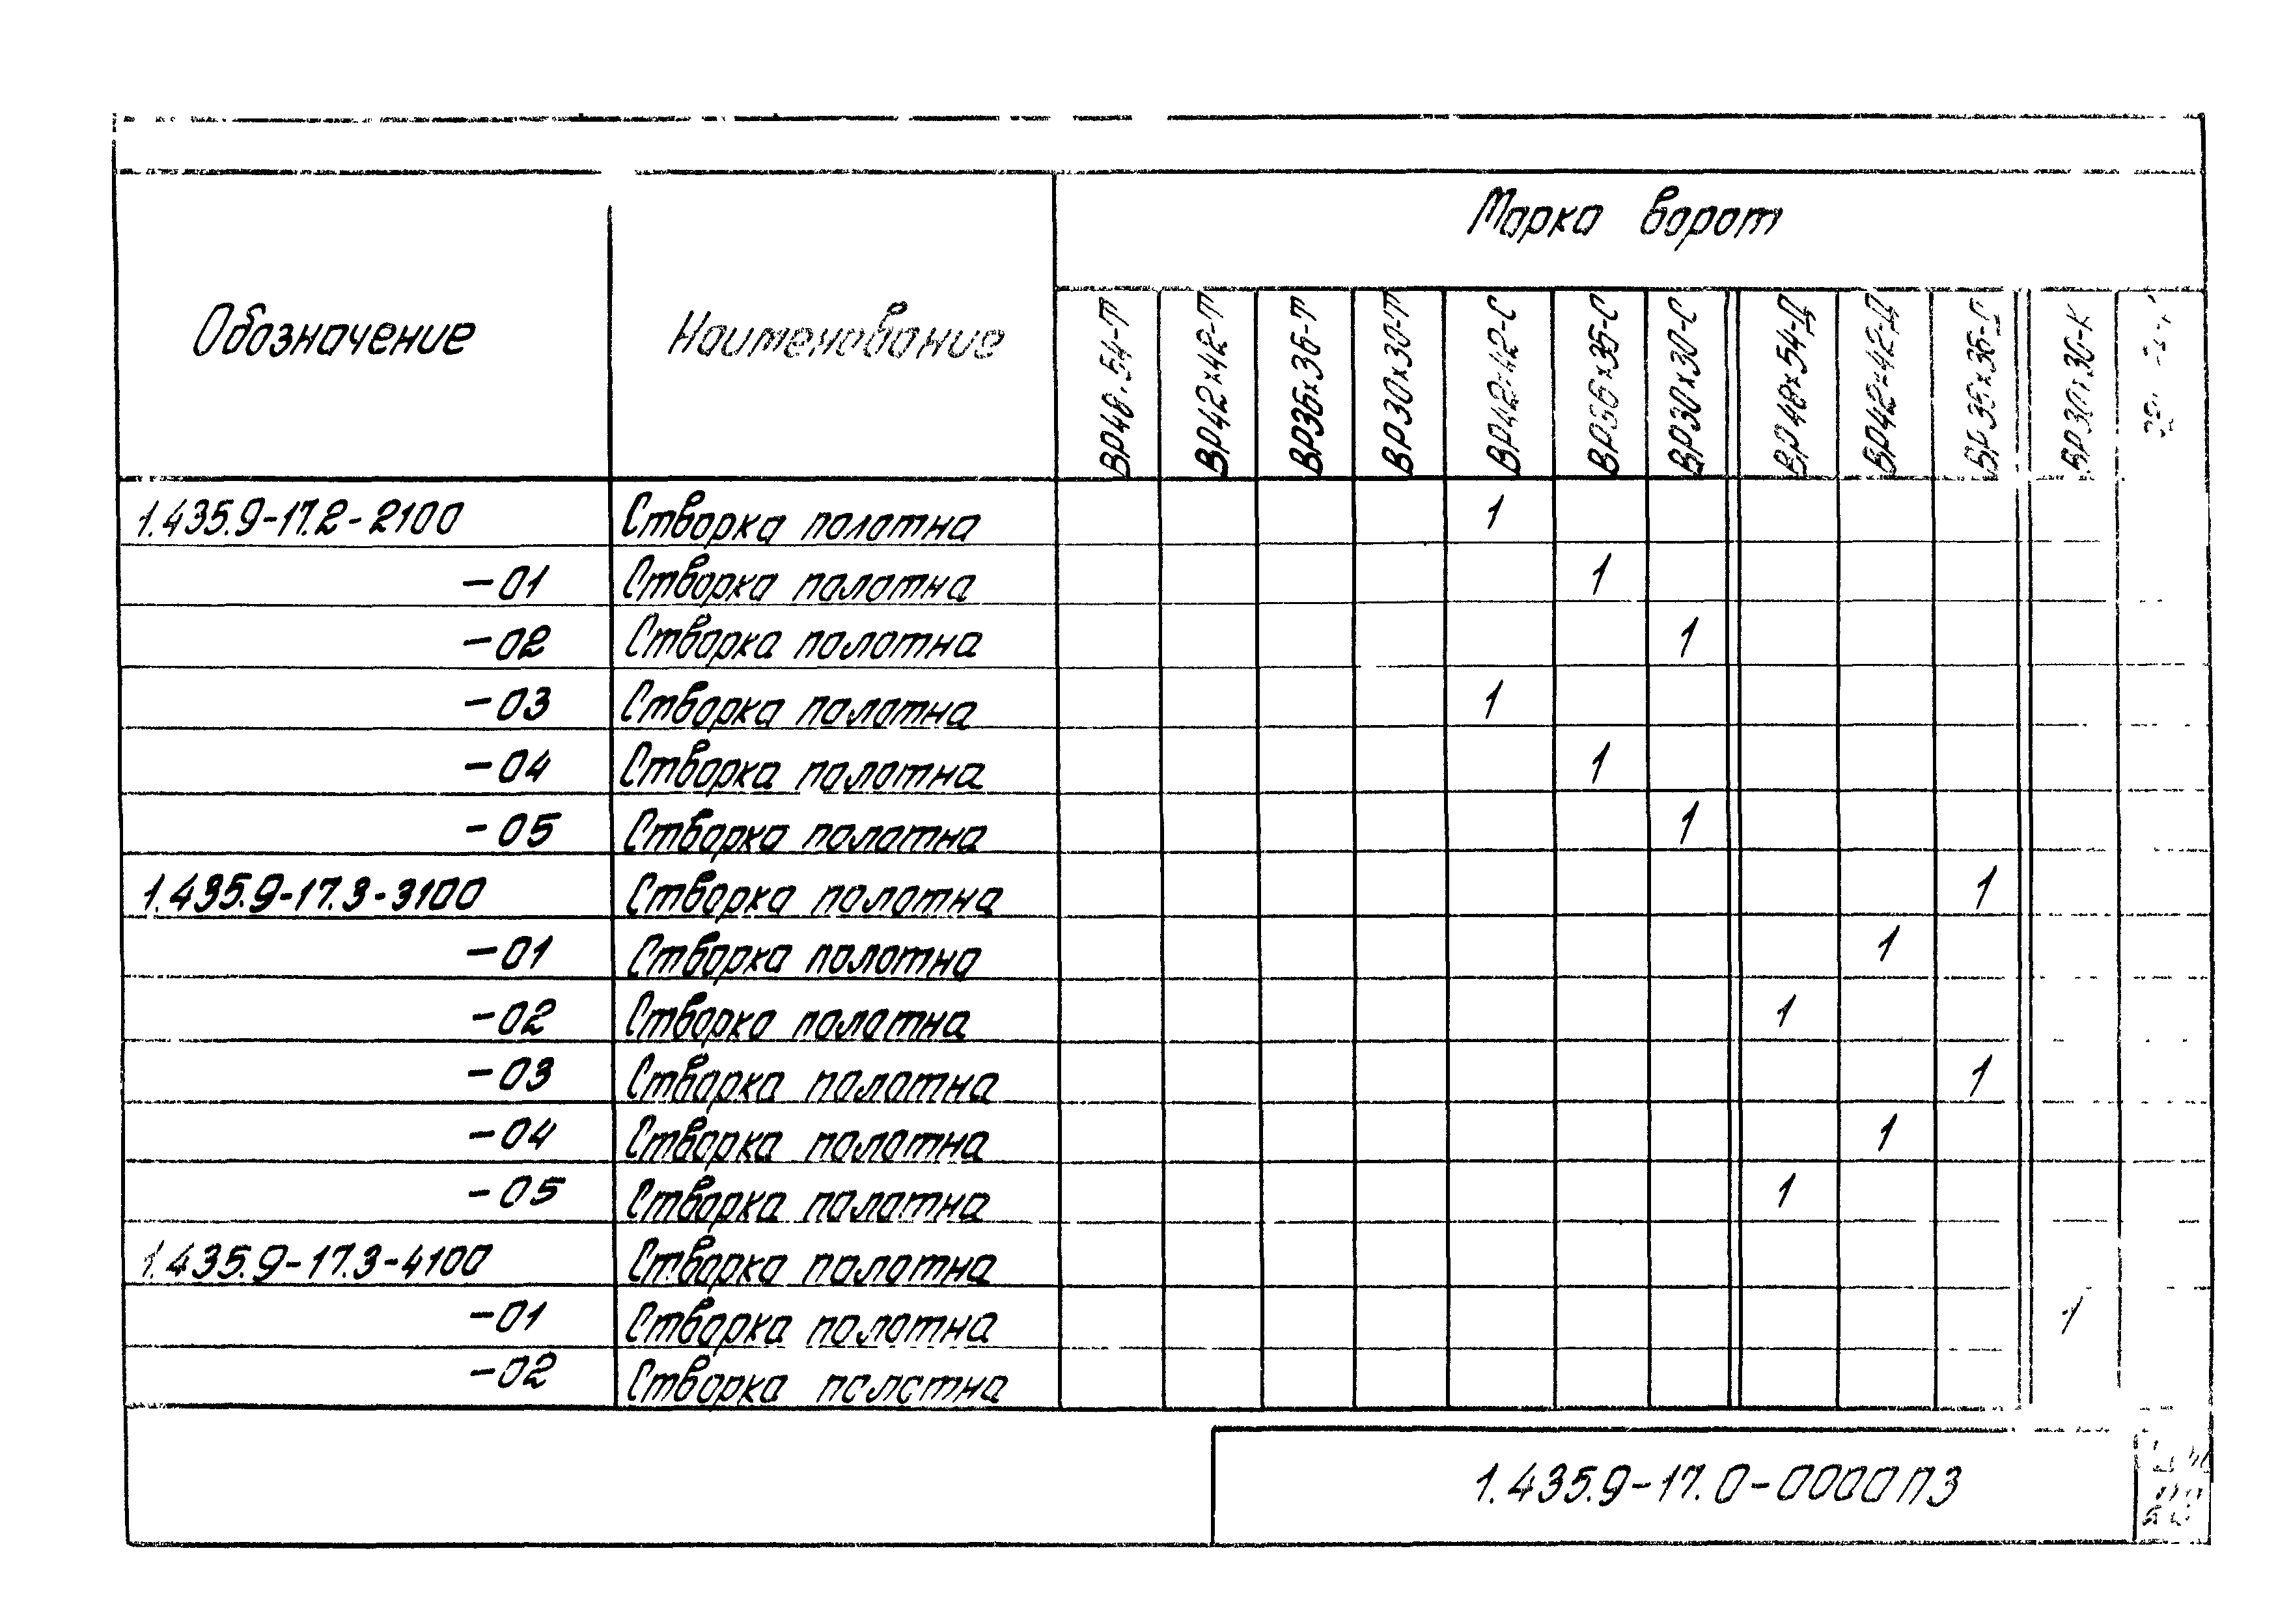 Марка ворот
Обозначение Наименование ВР48х54-Т ВР42х42-Т ВР36х36-Т ВР30х30-Т ВР42х42-С ВР36х36-С ВР30х30-С ВР48х54-Д ВР42х42-Д ВР36х36-Д ВР30х30-К
1.435.9-17.2-2100 Створка полотна 1
-01 Створка полотна 1
-02 Створка полотна 1
-03 Створка полотна 1
-04 Створка полотна 1
-05 Створка полотна 1
1.435.9-17.3-3100 Створка полотна 1
-01 Створка полотна 1
-02 Створка полотна 1
-03 Створка полотна 1
-04 Створка полотна 1
-05 Створка полотна 1
1.435.9-17.3-4100 Створка полотна
-01 Створка полотна 1
-02 Створка полотна
1.435.9-17.0-0000ПЗ